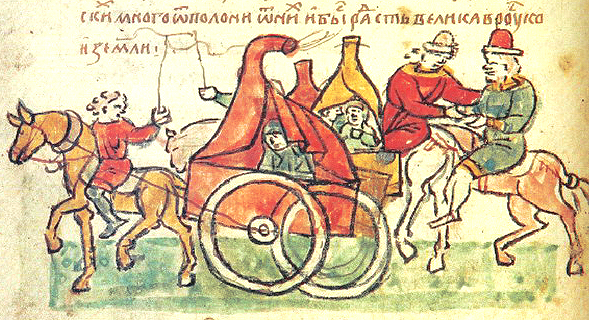 скїи много ѿполони ѿниⷯ и бы раⷣсть велика в роуско
и земли: